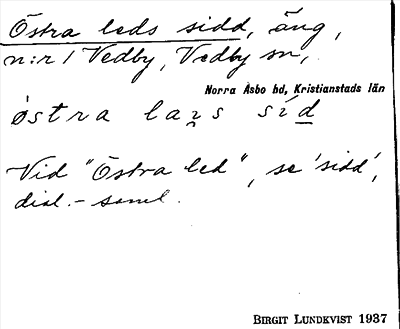 Östra leds sidd, äng,
n:r 1 Vedby, Vedby sn,
Norra Åsbo hd, Kristianstads län
östra la síd
Vid "Östra led", se 'sidd',
dial. - saml.
BIRGIT LUNDKVIST 1937